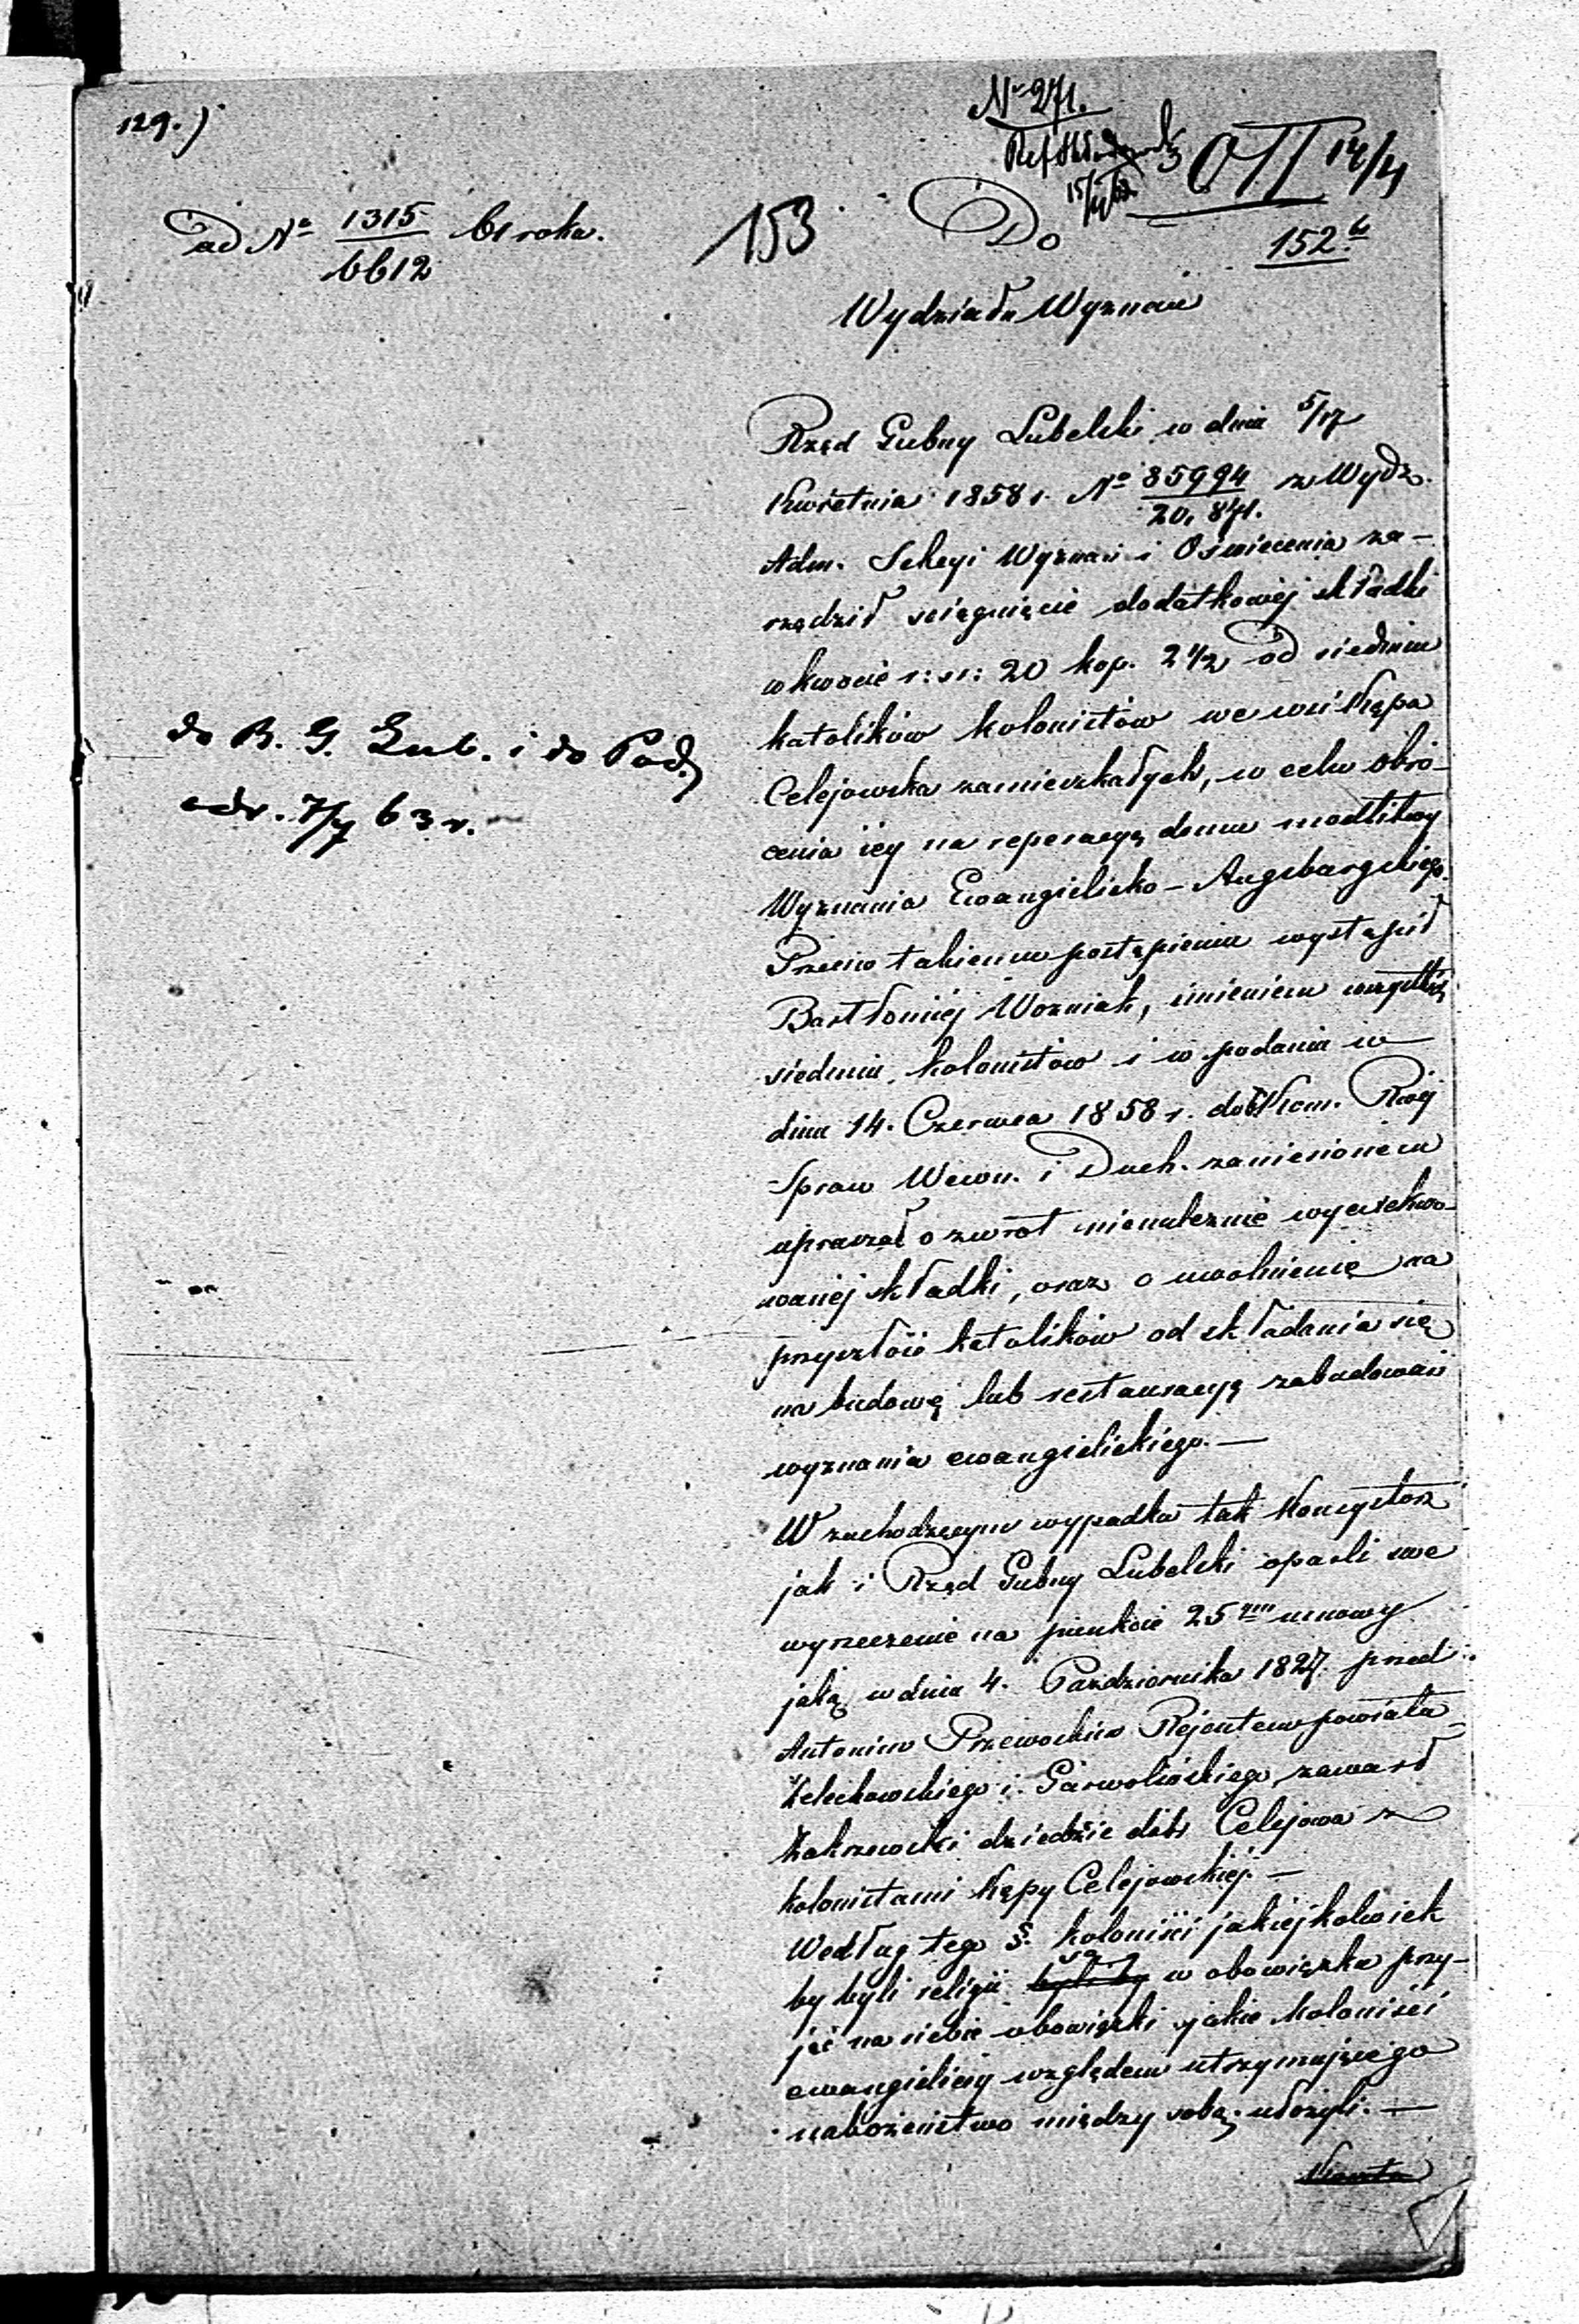 129.)
No 271.
15/4 62
OII 14/4
ad No 1315/6612 61 roku.
153
Do
152.
Wydziału Wyznań
Rząd Gubny Lubelski w dniu 5/17
Kwietnia 1858 r. No 35994/20,871. z Wydz.
Adm. Sekcyi Wyznań i Oświecenia za-
rządził ściągnięcie dodatkowéj składki
w kwocie r: sr: 20 kop. 2 1/2 od siedmiu
katolików kolonistów we wsi Kępa
Celejowska zamieszkałych, w celu obró-
cenia iey na reperacyą domu modlitwy
Wyznania Ewangielicko-Augsburgskiego.
Przeciw takiemu postąpieniu wystąpił
Bartłomiéj Wozniak, imieniem wszystkich
siedmiu kolonistów i w podaniu w
dniu 14. Czerwca 1858 r. do Kom. Rwéj
Spraw Wewn. i Duch. zaniesionem
upraszał o zwrot nienależnie wyexekwo-
wanéj składki, oraz o uwolnienie na
przyszłość katolików od składania się
na budowę lub restauracyą zabudowań
wyznania ewangielickiego. —
W zachodzącym wypadku tak Konsystorz
jak i Rząd Gubny Lubelski oparli swe
wyrzeczenie na punkcie 25tym umowy
jaką w dniu 4. Października 1827. przed
Antonim Rejentem powiatu
Żelechowskiego i Garwolińskiego, zawarł
Zakrzewski dziedzic dóbr Celejowa z
kolonistami Kępy Celejowskiéj. —
Według tego §. koloniści jakiejkolwiek
by byli religii są w obowiązku przy-
jąć na siebie obowiązki jakie koloniści
ewangieliccy względem utrzymującego
nabożeństwo między sobą ułożyli. —
do R. G. Lub. i do Pod.
odr. 7/7 63 r.